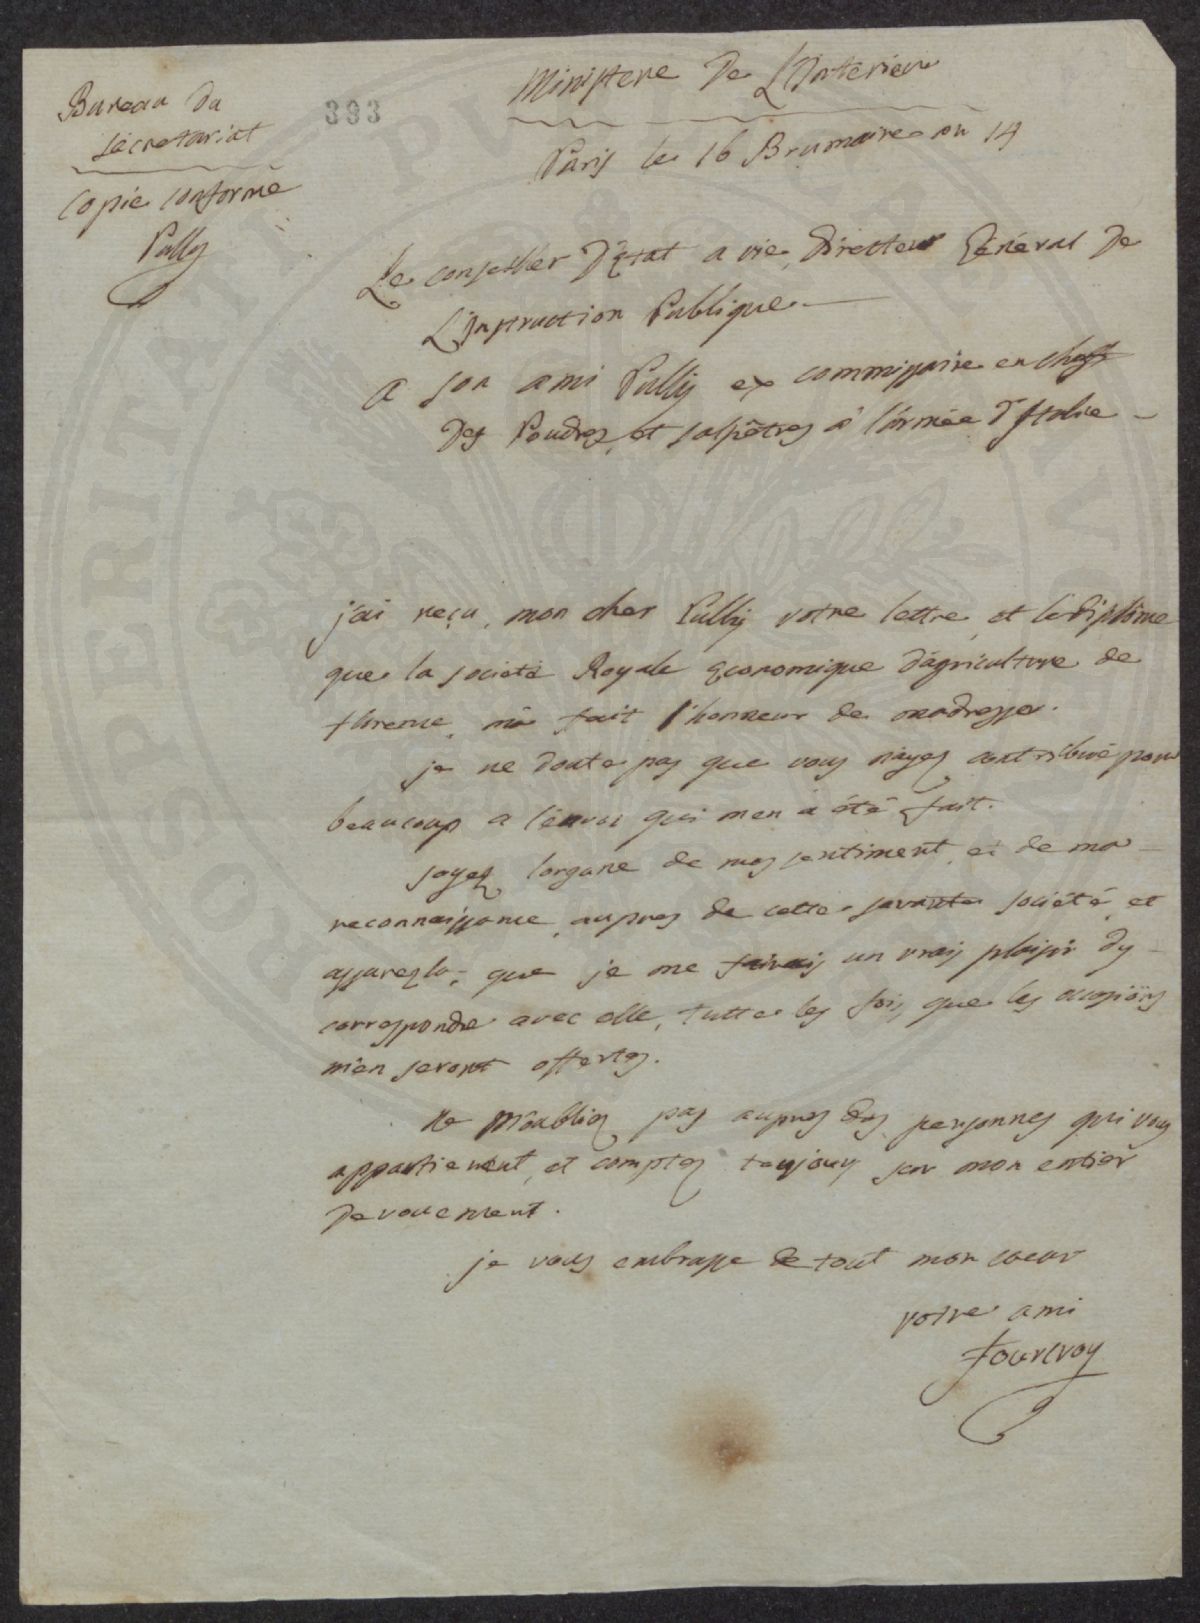 Bureau du
Sécretariat
Copie conforme
Pully
393
Ministere De L'Interieur
Paris le 16 Brumaire an 14
Le conseiller D'Etat a vie, Directeur Général De
L'Instruction Publique
a son ami Pully ex commissaire en chef
Des Poudres et salpêtres à l'armée D'Italie
j'ai reçu, mon cher Pully votre lettre, et le Diplôme
que la societé Royale Economique d'agriculture de
florence, m'a fait l'honneur de m'adresser.
je ne doute pas que vous n'ayez contribué pour
beaucoup a l'envoi qui m'en à été fait.
soyez l'organe de mes sentiment, et de ma
reconnaissance, aupres de cette savante société, et
assurez la, que je me fairais un vrais plaisir d'y
correspondre avec elle, tutte les fois, que les occasions
m'en seront offertes.
Ne M'oubliez pas aupres des personnes qui vous
appartienent, et comptez toujours sur mon entier
Devouement.
je vous embrasse de tout mon coeur
votre ami
fourcroy